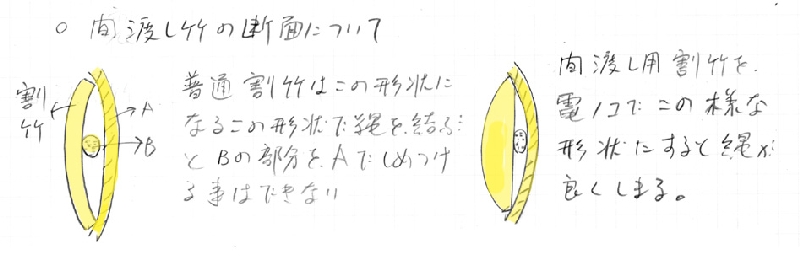 ○ 間渡し竹の断面について
割竹
A
B
普通割竹はこの形状に
なるこの形状で縄を結る
と Bの部分をAでしめつけ
る事はできない
間渡し用割竹を
電ノコでこの様な
形状にすると縄が
良くしまる。